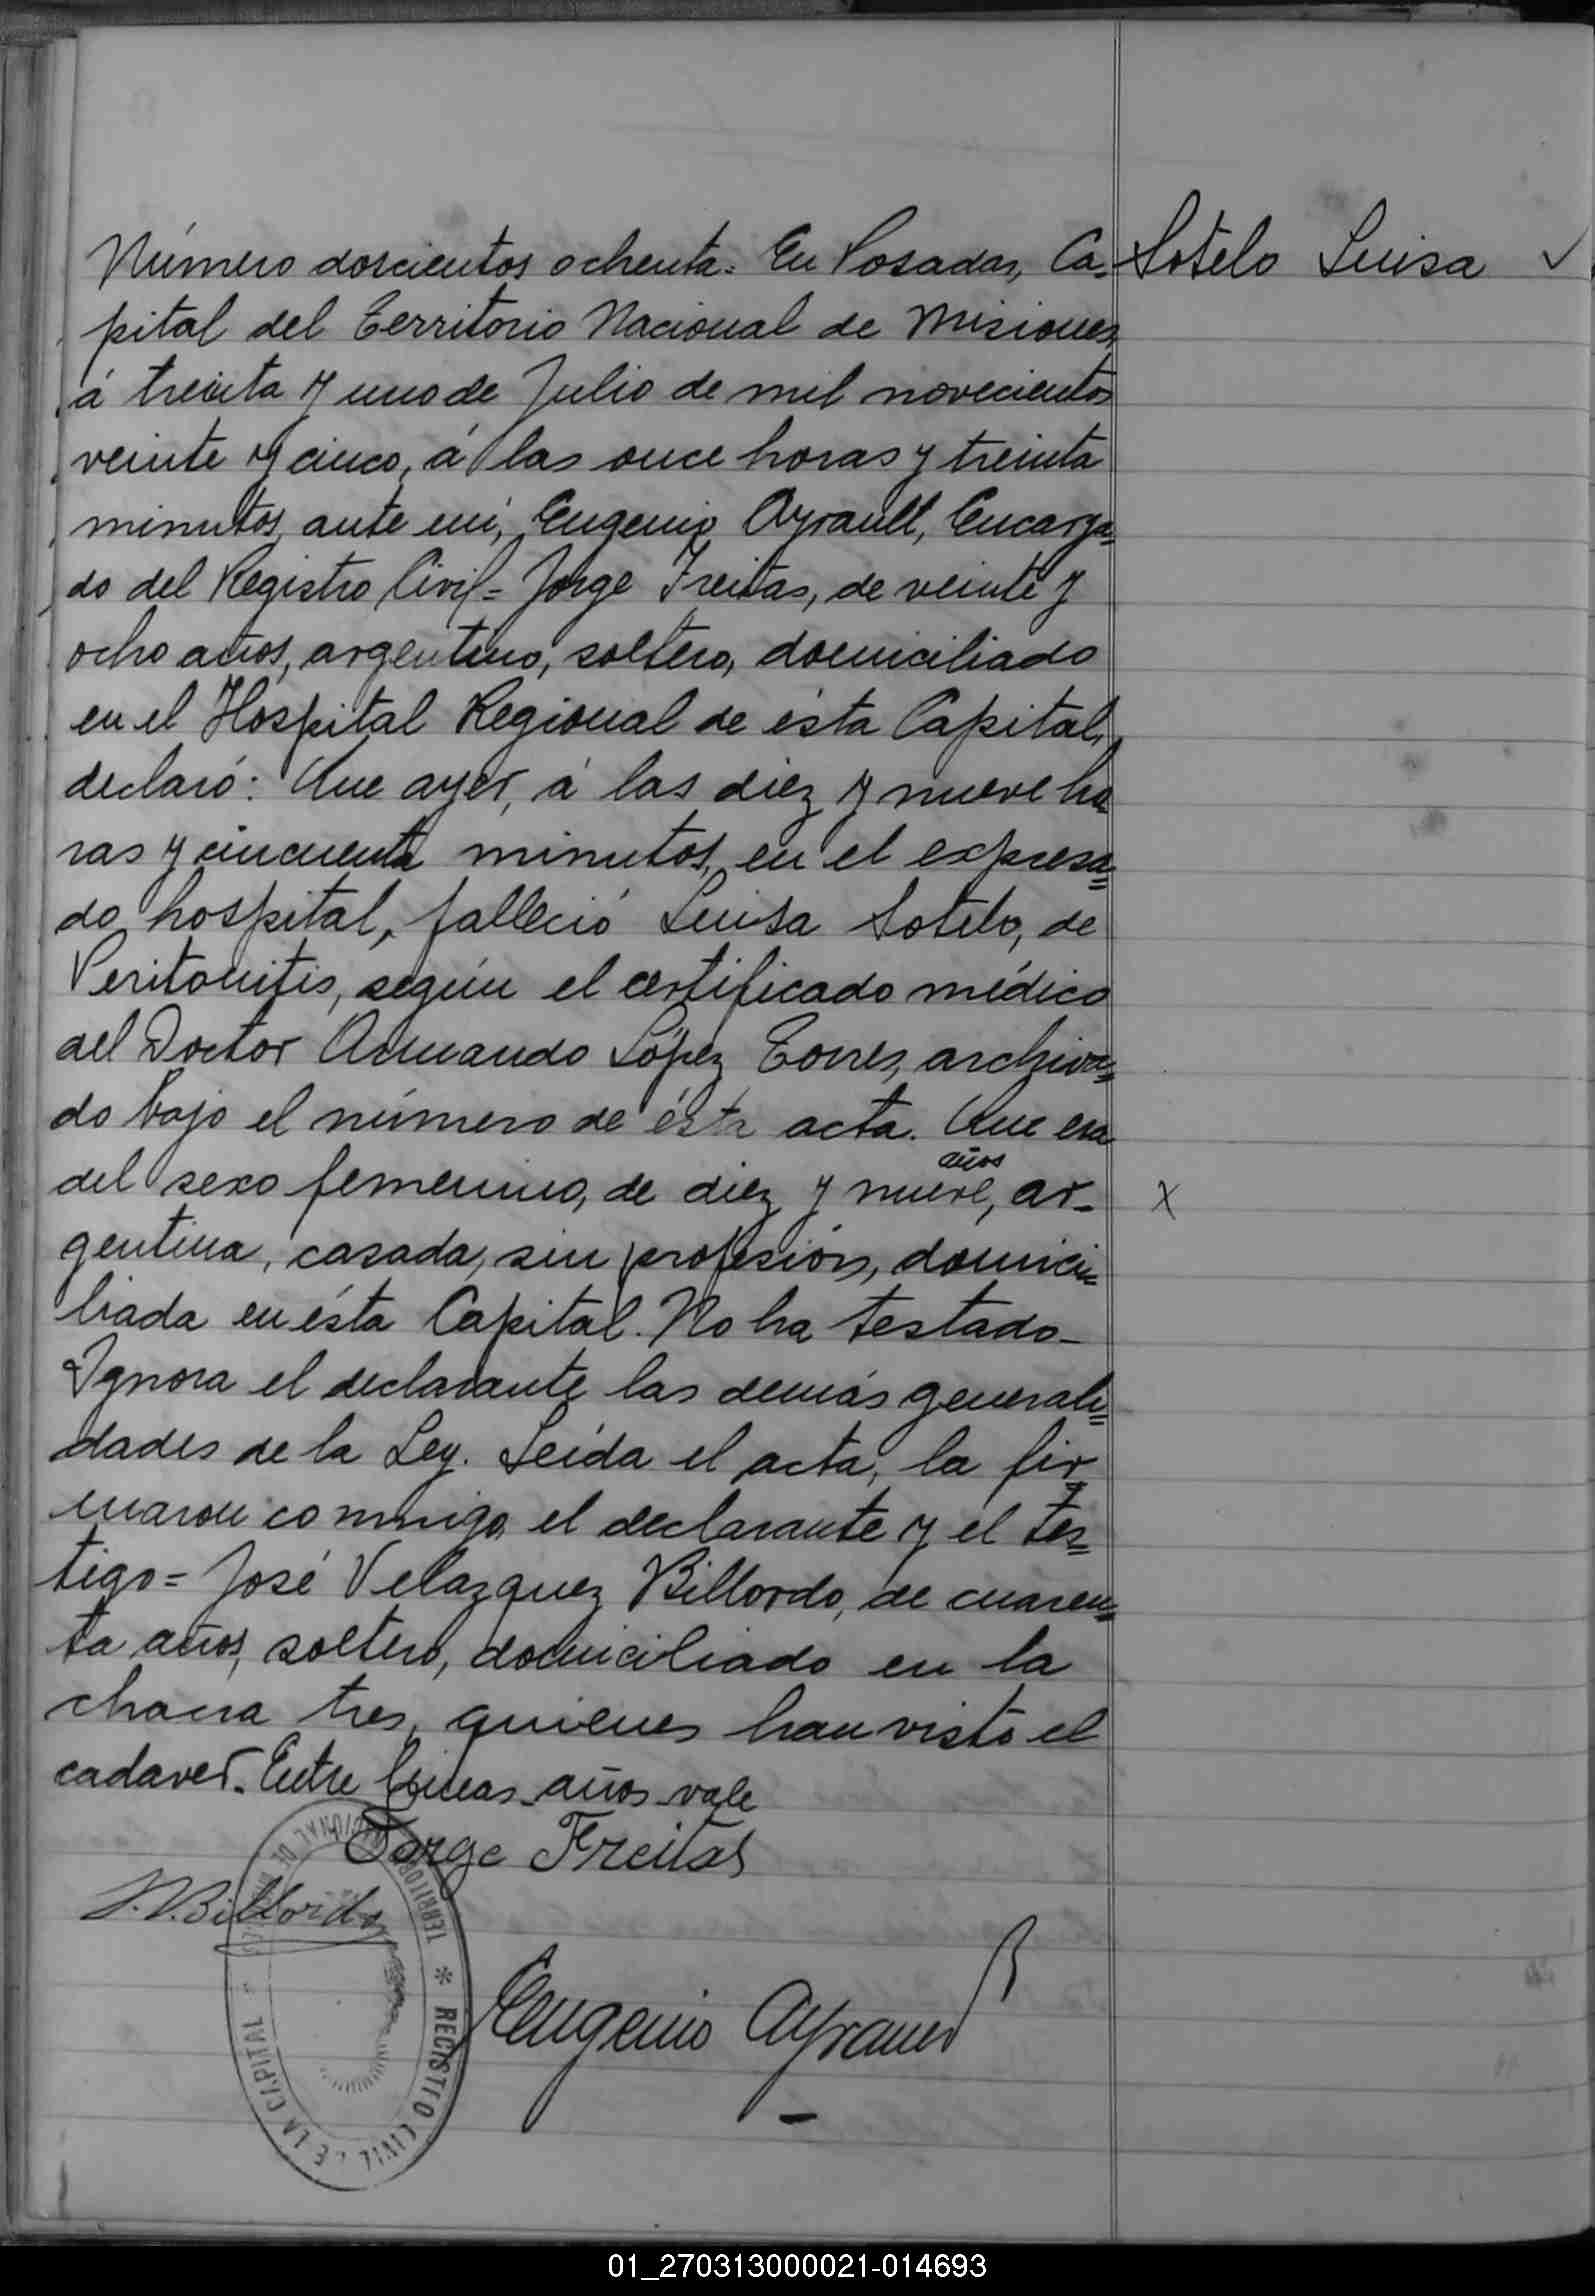 Número doscientos ochenta = En Posadas, Ca=
pital del Territorio Nacional de Misiones,
á treinta y uno de Julio de mil novecientos
veinte y cinco, á las once horas y treinta
minutos, ante mi, Eugenio Ayrault, Encarga=
do del Registro Civil = Jorge Freitas, de veinte y
ocho años, argentino, soltero, domiciliado
en el Hospital Regional de ésta Capital,
declaró: Que ayer, á las diez y nueve ho
ras y cincuenta minutos, en el expresa=
do hospital, falleció Luisa Sotelo, de
Peritonitis, según el certificado médico
del Doctor Armando López Torres, archiva=
do bajo el número de ésta acta. Que era
del sexo femenino, de diez y nueve, ar-
años
gentina, casada, sin profesión, domici=
liada en ésta Capital. No ha testado-
Ignora el declarante las demás generali=
dades de la Ley. Leída el acta, la fir=
maron conmigo el declarante y el tes=
tigo = José Velazquez Billordo, de cuaren=
ta años, soltero, domiciliado en la
chacra tres, quienes han visto el
cadaver. Entre lineas-años-vale
Jorge Freitas
J.V.Billordo
Eugenio Ayrault
Sotelo Luisa ✓
X
TERRITORIO NACIONAL DE MISIONES * REGISTRO CIVIL DE LA CAPITAL
01_270313000021-014693